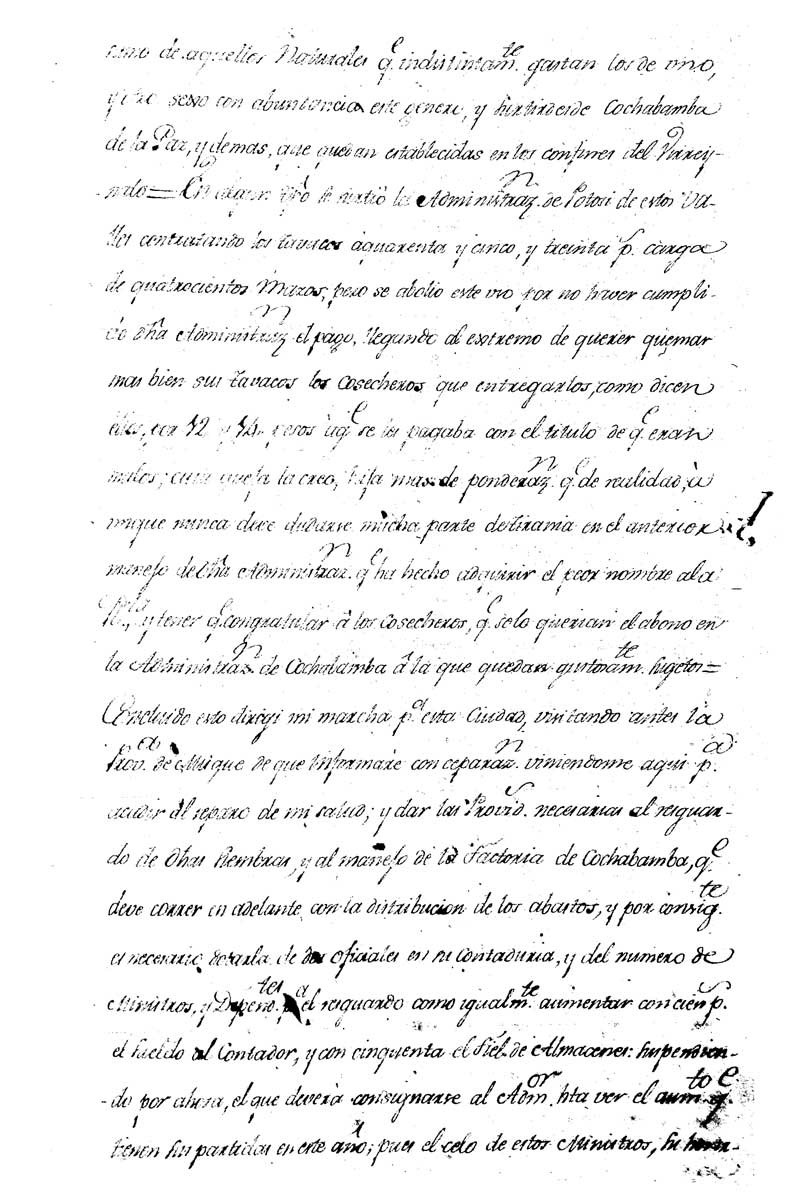 sumo de aquellos Naturales q.e indistintam.te gastan los de uno,
y otro sexo con abundancia este genero, y surtir desde Cochabamba
de la Paz, y demas, que quedan establecidas en los confines del Virrey-
nato= En algun tpō se surtió la Administraz.n de Potosi de estos Va-
lles contratando los tavacos aquarenta y cinco, y treinta p.s carga
de quatrocientos Mazos, pero se abolio este uso por no haver cumpli-
do dha Administraz.n el pago, llegando al extremo de querer quemar
mas bien sus tavacos los Cosecheros que entregarlos, como dicen
ellos, por 12 y 14 pesos aq.e se les pagaba con el titulo de q.e eran
malos; cuia quexa la creo, hija mas de ponderaz.n q.e de realidad, â
unque nunca deve dudarse mucha parte de tirania en el anterior
manejo de dha Administraz.n q.e ha hecho adquirir el peor nombre ala
y tener q.e congratular â los Cosecheros, q.e solo querian el abono en
la Administraz.n de Cochabamba â la que quedan gustosam.te sugetos=
Concluido esto dirigi mi marcha p.a esta Ciudad, visitando antes la
Prov.a de Misque de que informare con ceparaz.n viniendome aqui p.a
acudir al reparo de mi salud; y dar las Provid.s necesarias al resguar-
do de dhas siembras, y al manejo de la Factoria de Cochabamba, q.e
deve correr en adelante con la distribucion de los abastos, y por consig.te
es necesario dotarla de dos oficiales en su Contaduria, y del numero de
Ministros, y Depend.tes p.a el resguardo como igualm.te aumentar con cien p.s
el sueldo al Contador, y con cinquenta el Fiel de Almacenes: suspendien-
do por ahora, el que deverá consignarse al Adm.or hta ver el aum.to q.e
tienen sus partidas en este año; pues el celo de estos Ministros, su honra-